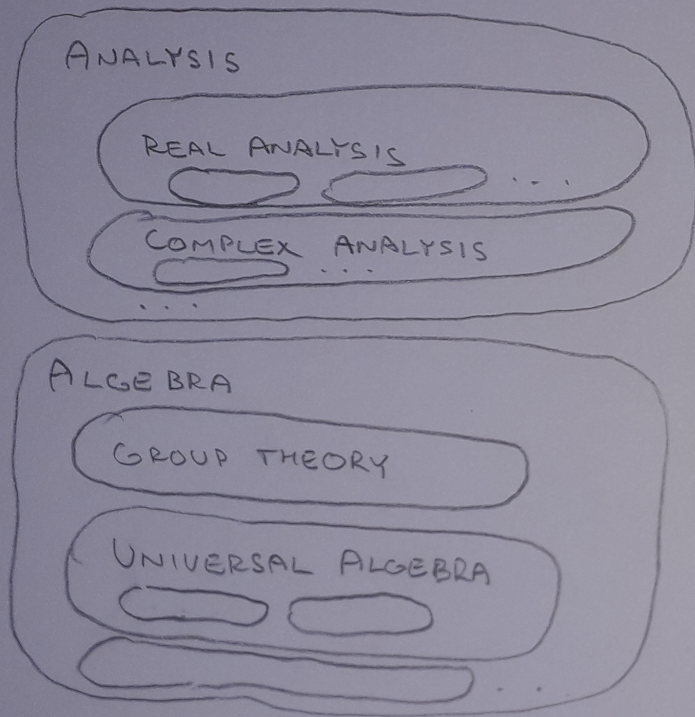 ANALYSIS
REAL ANALYSIS
...
COMPLEX ANALYSIS
...
...
ALGEBRA
GROUP THEORY
UNIVERSAL ALGEBRA
...